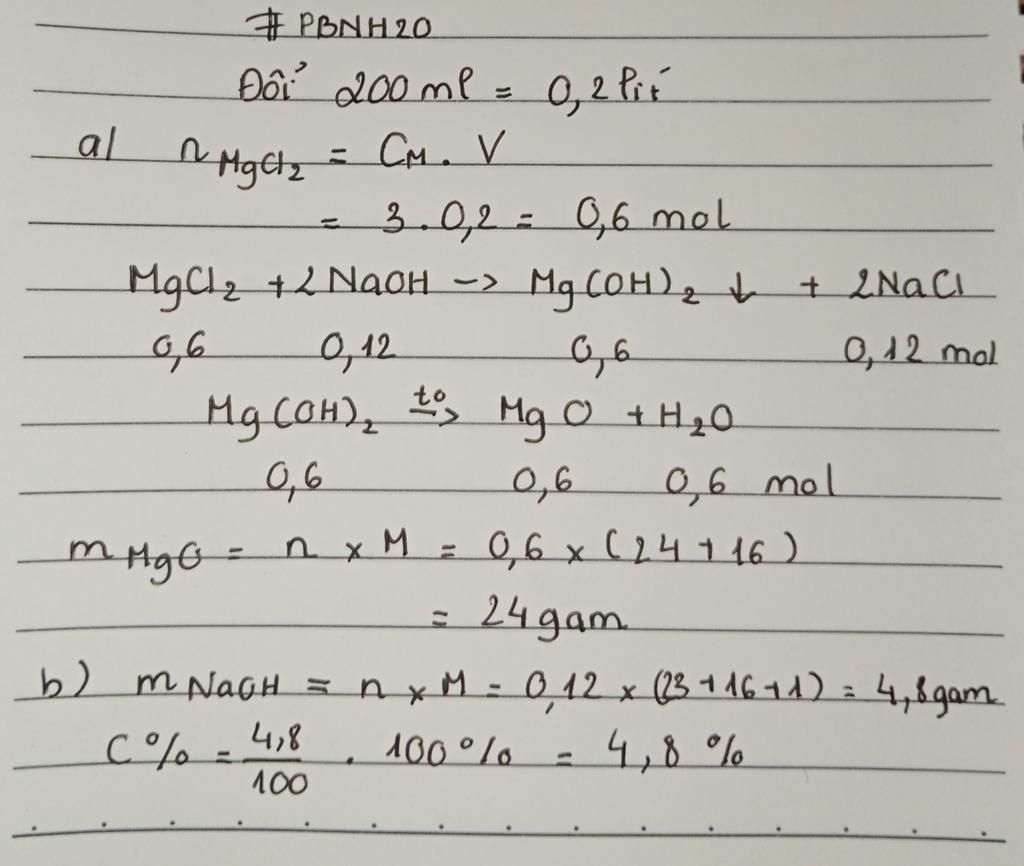 # PBNH20
Đổi 200 ml = 0,2 lít
a/ n MgCl2 = CM. V
= 3 . 0,2 = 0,6 mol
MgCl2 + 2 NaOH -> Mg(OH)2 ↓ + 2NaCl
0,6 0,12 0,6 0,12 mol
Mg(OH)2 to -> MgO + H2O
0,6 0,6 0,6 mol
m MgO = n x M = 0,6 x (24 + 16)
= 24 gam
b) m NaOH = n x M = 0,12 x (23 + 16 + 1) = 4,8 gam
C% = 4,8/100 . 100% = 4,8 %